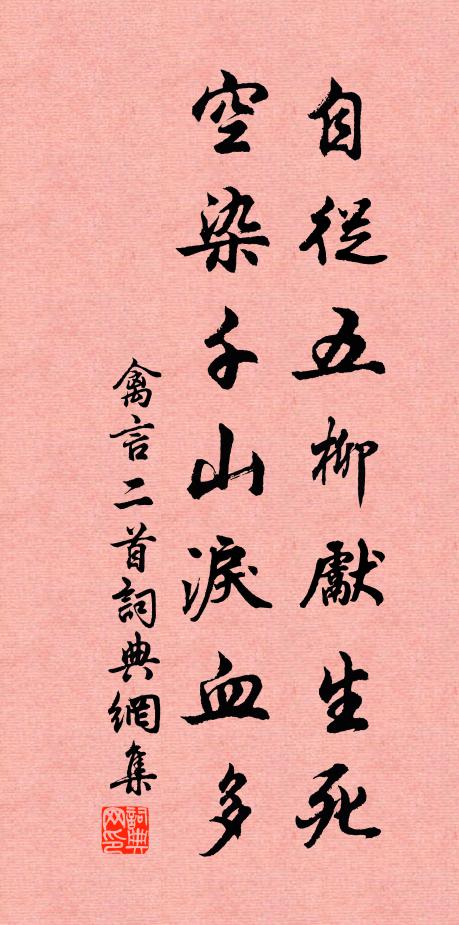 自從五柳獻生死
空染千山淚血多
禽言二首詞典網集
詞典网印